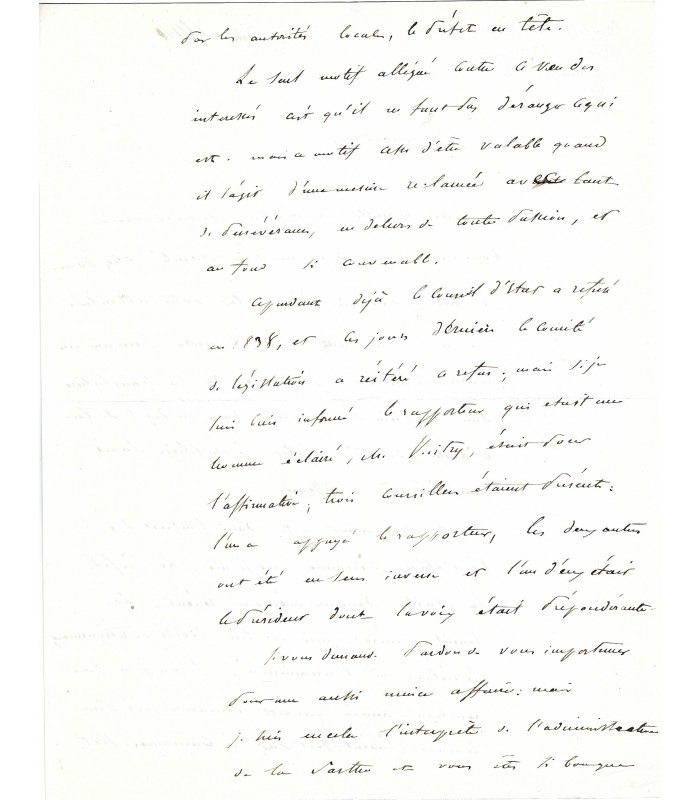 par les autorités locales, le préfet en tête.
Le seul motif allégué contre ce vœu des
intéressés est qu'il ne faut pas déranger ce qui
est. mais ce motif d'être valable quand
il s'agit d'une mesure réclamée avec tant
de persévérance, en dehors de toute passion, et
au fond si convenable.
cependant déjà le Conseil d'Etat a refusé
en 1838, et ces jours derniers le comité
de législation a réitéré ce refus; mais si je
suis bien informé le rapporteur qui etait un
homme éclairé, Mr Vuitry, était pour
l'affirmative; trois conseillers étaient présents:
l'un a appuyé le rapporteur, les deux autres
ont été en sens inverse et l'un d'eux était
le président dont la voix était prépondérante.
Je vous demande pardon de vous importuner
pour une aussi mince affaire: mais
je suis en cela l'interprète de l'administration
de la Sarthe et vous êtes si bon que